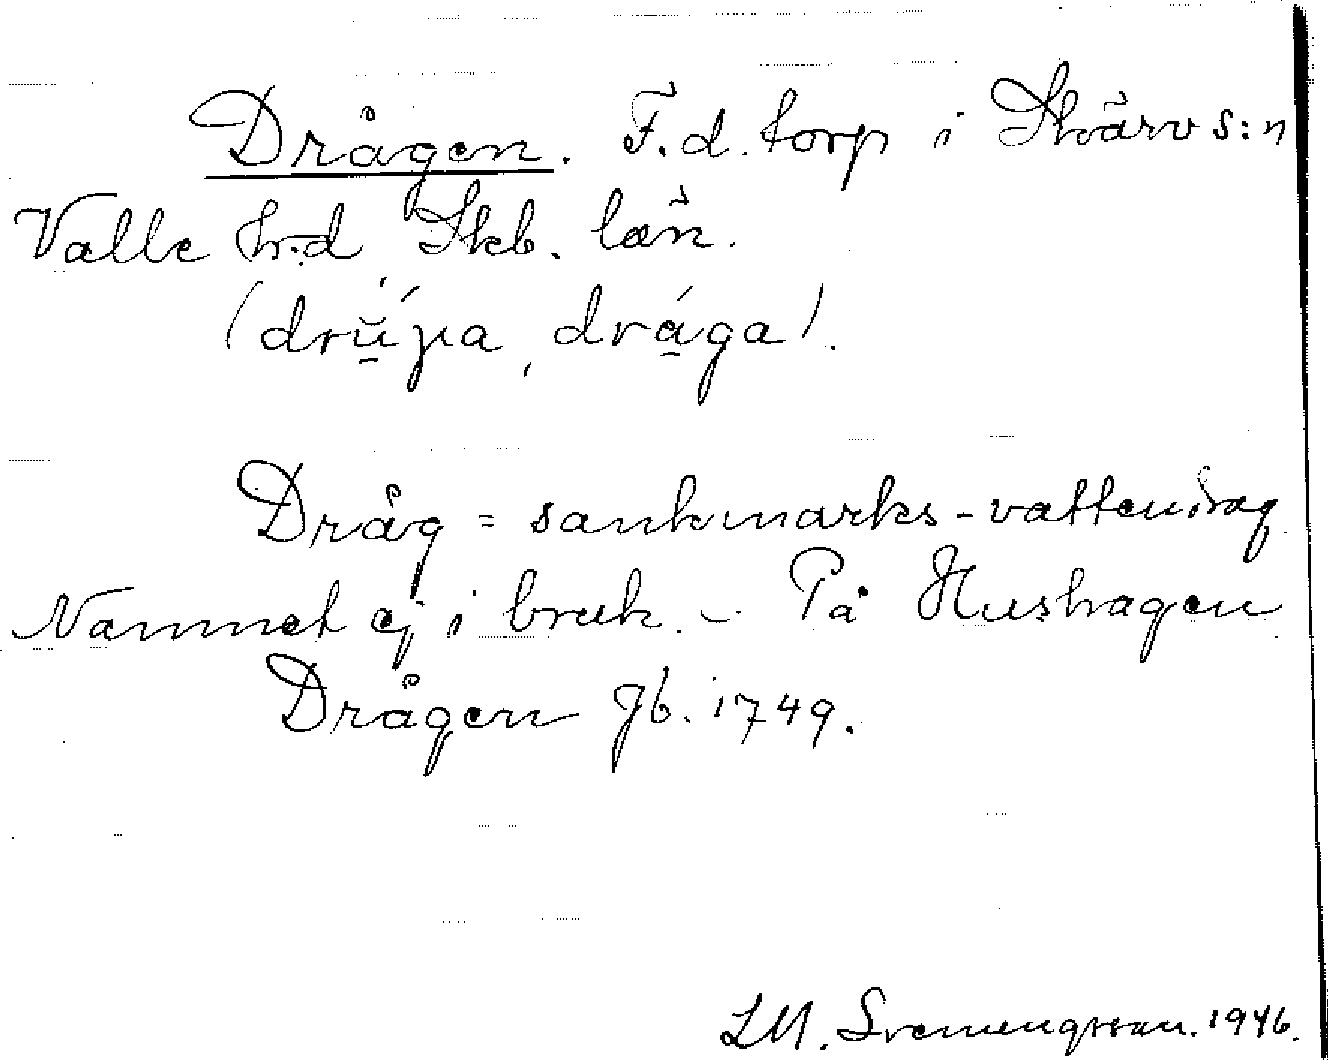 Drågen. F.d. torp i Skärvs:n
Valle h:d Skb. län.
(drága).
Dråg = sankmarks-vattendrag
Namnet ej i bruk. – På Hushagen
Drågen Jb. 1749.
LM. Svenungsson. 1946.